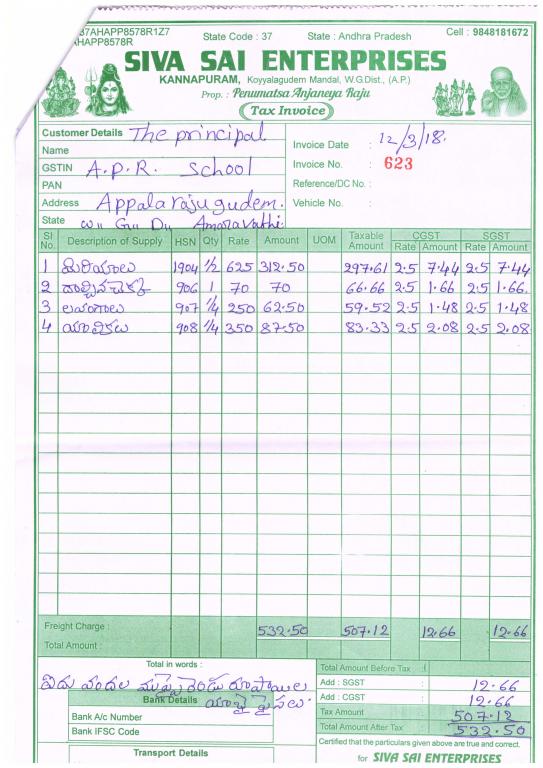 37AHAPP8578R1Z7
AHAPP8578R
State Code : 37
State : Andhra Pradesh
Cell : 9848181672
SIVA SAI ENTERPRISES
KANNAPURAM, Koyyalagudem Mandal, W.G.Dist., (A.P.)
Prop. : Penumatsa Anjaneya Raju
Tax Invoice
Customer Details The principal
Name
GSTIN A.P.R. School
PAN
Address Appalarajugudem.
State
Invoice Date : 12/3/18.
Invoice No. : 623
Reference/DC No. :
Vehicle No. :
Sl No. Description of Supply HSN Qty Rate Amount UOM Taxable Amount CGST Rate Amount SGST Rate Amount
1 మిరియాలు 1904 1/2 625 312.50 297.61 2.5 7.44 2.5 7.44
2 దాల్చినచెక్క 906 1 70 70 66.66 2.5 1.66 2.5 1.66.
3 లవంగాలు 907 1/4 250 62.50 59.52 2.5 1.48 2.5 1.48
4 యాలికలు 908 1/4 350 87.50 83.33 2.5 2.08 2.5 2.08
Freight Charge : 532.50 507.12 12.66 12.66
Total Amount :
Total in words :
ఐదు వందల ముప్పై రెండు రూపాయల
యాభై పైసలు.
Bank Details
Bank A/c Number
Bank IFSC Code
Transport Details
Total Amount Before Tax :
Add : SGST : 12.66
Add : CGST : 12.66
Tax Amount : 507.12
Total Amount After Tax : 532.50
Certified that the particulars given above are true and correct.
for SIVA SAI ENTERPRISES